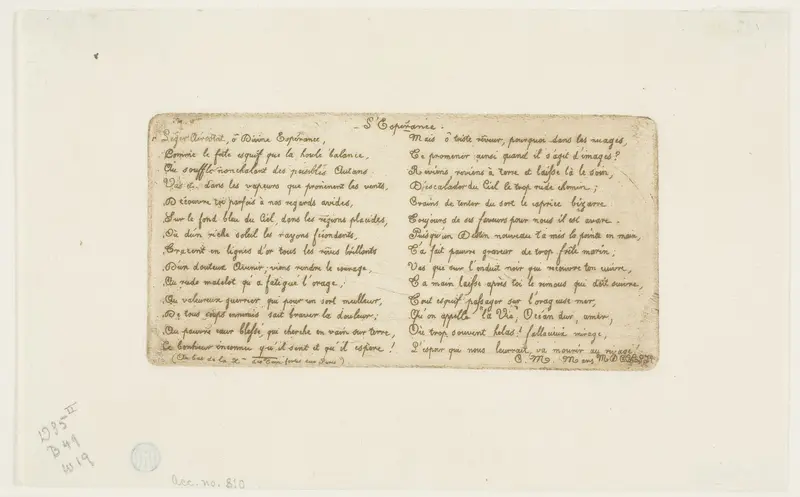 L'Espérance.
Léger Aérostat, ô Divine Espérance,
Comme le frêle esquif que la houle balance,
Au souffle nonchalant des paisibles Autans.
Vas et, dans les vapeurs que promènent les vents,
Découvre toi parfois à nos regards avides,
Sur le fond bleu du Ciel, dans les régions placides,
Où d'un riche soleil les rayons fécondants,
Tracent en lignes d'or tous les rêves brillants
D'un douteux Avenir; viens rendre le courage,
Au rude matelot qu'a fatigué l'orage;
Au valeureux guerrier qui pour un sort meilleur,
De tous corps ennemis sait braver la douleur;
Au pauvre cœur blessé, qui cherche en vain sur terre,
Le bonheur inconnu qu'il sent et qu'il espère!
(Au bas de la
Mais ô triste rêveur, pourquoi dans les nuages,
Te promener ainsi quand il s'agit d'images?
Reviens, reviens à terre et laisse là le soin,
D'escalader du Ciel le trop rude chemin;
Crains de tenter du sort le caprice bizarre
Toujours de ses faveurs pour nous il est avare.
Puisqu'un Destin nouveau t'a mis la pointe en main,
T'a fait pauvre graveur de trop frêle marin;
Vas que sur l'enduit noir qui recouvre ton cuivre,
Ta main laisse après toi le remous qui doit suivre,
Tout esquif passager sur l'orageuse mer,
Qu'on appelle "la Vie", Océan dur, amer,
Où trop souvent hélas! fallacieux mirage,
L'espoir qui nous leurrait, va mourir au rivage!
C. M.
D95 II
B 49
W 19
Acc. no. 810